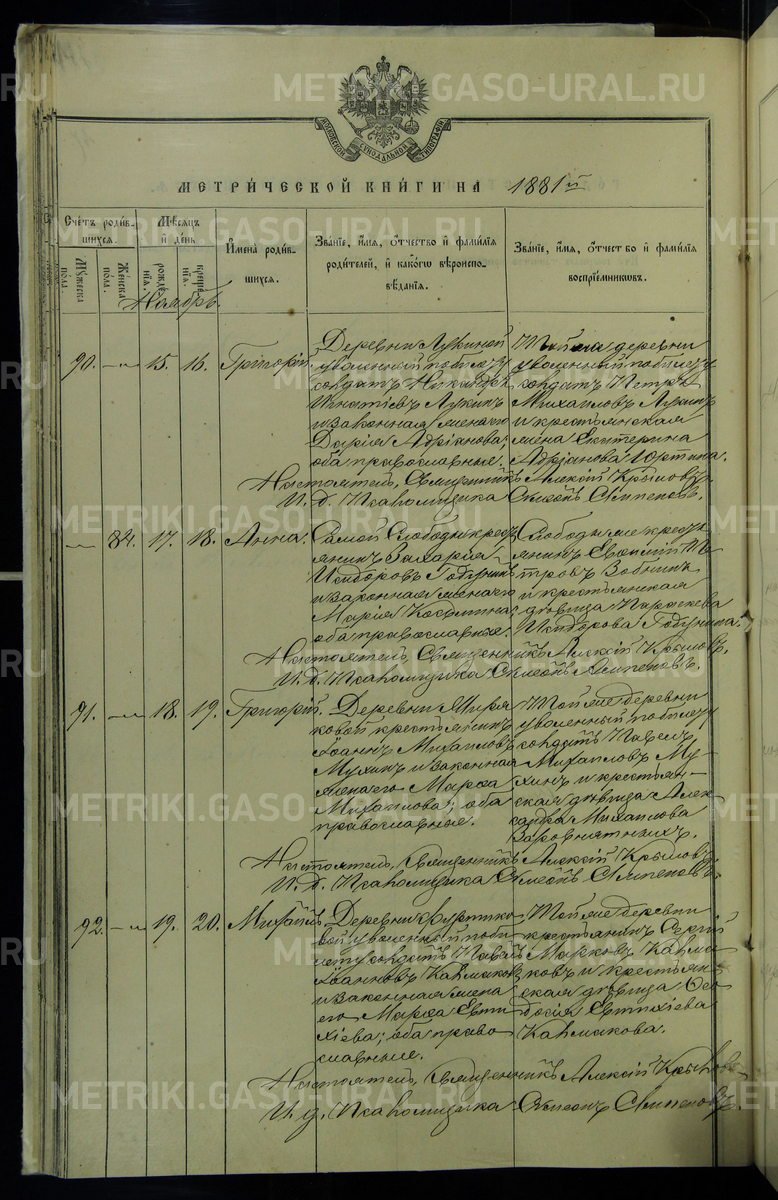 METRIKI.GASO-URAL.RU
МОСКОВСКОЙ СѴНОДАЛЬНОЙ ТИПОГРАФІИ
МЕТРИ́ЧЕСКОЙ КНИ́ГИ НА 1881й
Сче́тъ роди́вшихсѧ.
Мѣ́сѧцъ и҆ де́нь
И҆мена̀ роди́вшихсѧ.
Зва́нїе, и҆́мѧ, ѻ҆́тчество и҆ фами́лїѧ родителей, и҆ како́гѡ вѣроисповѣ́данїѧ.
Зва́нїе, и҆́мѧ, ѻ҆́тчество и҆ фами́лїѧ воспрїе́мникѡвъ.
Мꙋ́жеска пола.
Же́нска пола.
рожде́нїѧ.
креще́нїѧ.
Ноябрь.
90. — „ 15. 16. Григорій.
Деревни Лукиной
уволенный побилету
солдатъ Никандръ
Игнатіевъ Лукинъ
и законная жена его
Дарія Адріанова;
оба православные.
Той же деревни
уволенный побилету
солдатъ Петръ
Михаиловъ Лукинъ
и крестьянская
жена Екатерина
Адріанова Юртина.
Настоятель, Священникъ Алексій Крыловъ.
И. д. Псаломщика Симеонъ
— 84. 17. 18. Анна.
Самой Слободы крестьянинъ Захарія
Исидоровъ
и законная жена его
Марія Косьмина;
оба православные.
Слободы же крестьянинъ Евфимій Петровъ
и крестьянская
дѣвица Параскева
Исидорова
Настоятель, Священникъ Алексій Крыловъ.
И. д. Псаломщика Симеонъ
91. — „ 18. 19. Григорій.
Деревни
крестьянинъ
Іоаннъ Михаиловъ
Мухинъ и законная
жена его Марѳа
Михаилова; оба
православные.
Той же деревни
уволенный побилету
солдатъ Павелъ
Михаиловъ Мухинъ и крестьянская дѣвица Александра Михаилова
Заровнятныхъ.
Настоятель, Священникъ Алексій Крыловъ.
И. д. Псаломщика Симеонъ
92. — „ 19. 20. Михаилъ.
Деревни
уволенный побилету солдатъ Павелъ
Іоанновъ Калмаковъ
и законная жена
его Марѳа Евтихіева; оба православные.
Той же деревни
крестьянинъ Сергій
Марковъ Калмаковъ и крестьянская дѣвица Ѳеодосія Евтихіева
Калмакова.
Настоятель, Священникъ Алексій Крыловъ.
И. д. Псаломщика Симеонъ